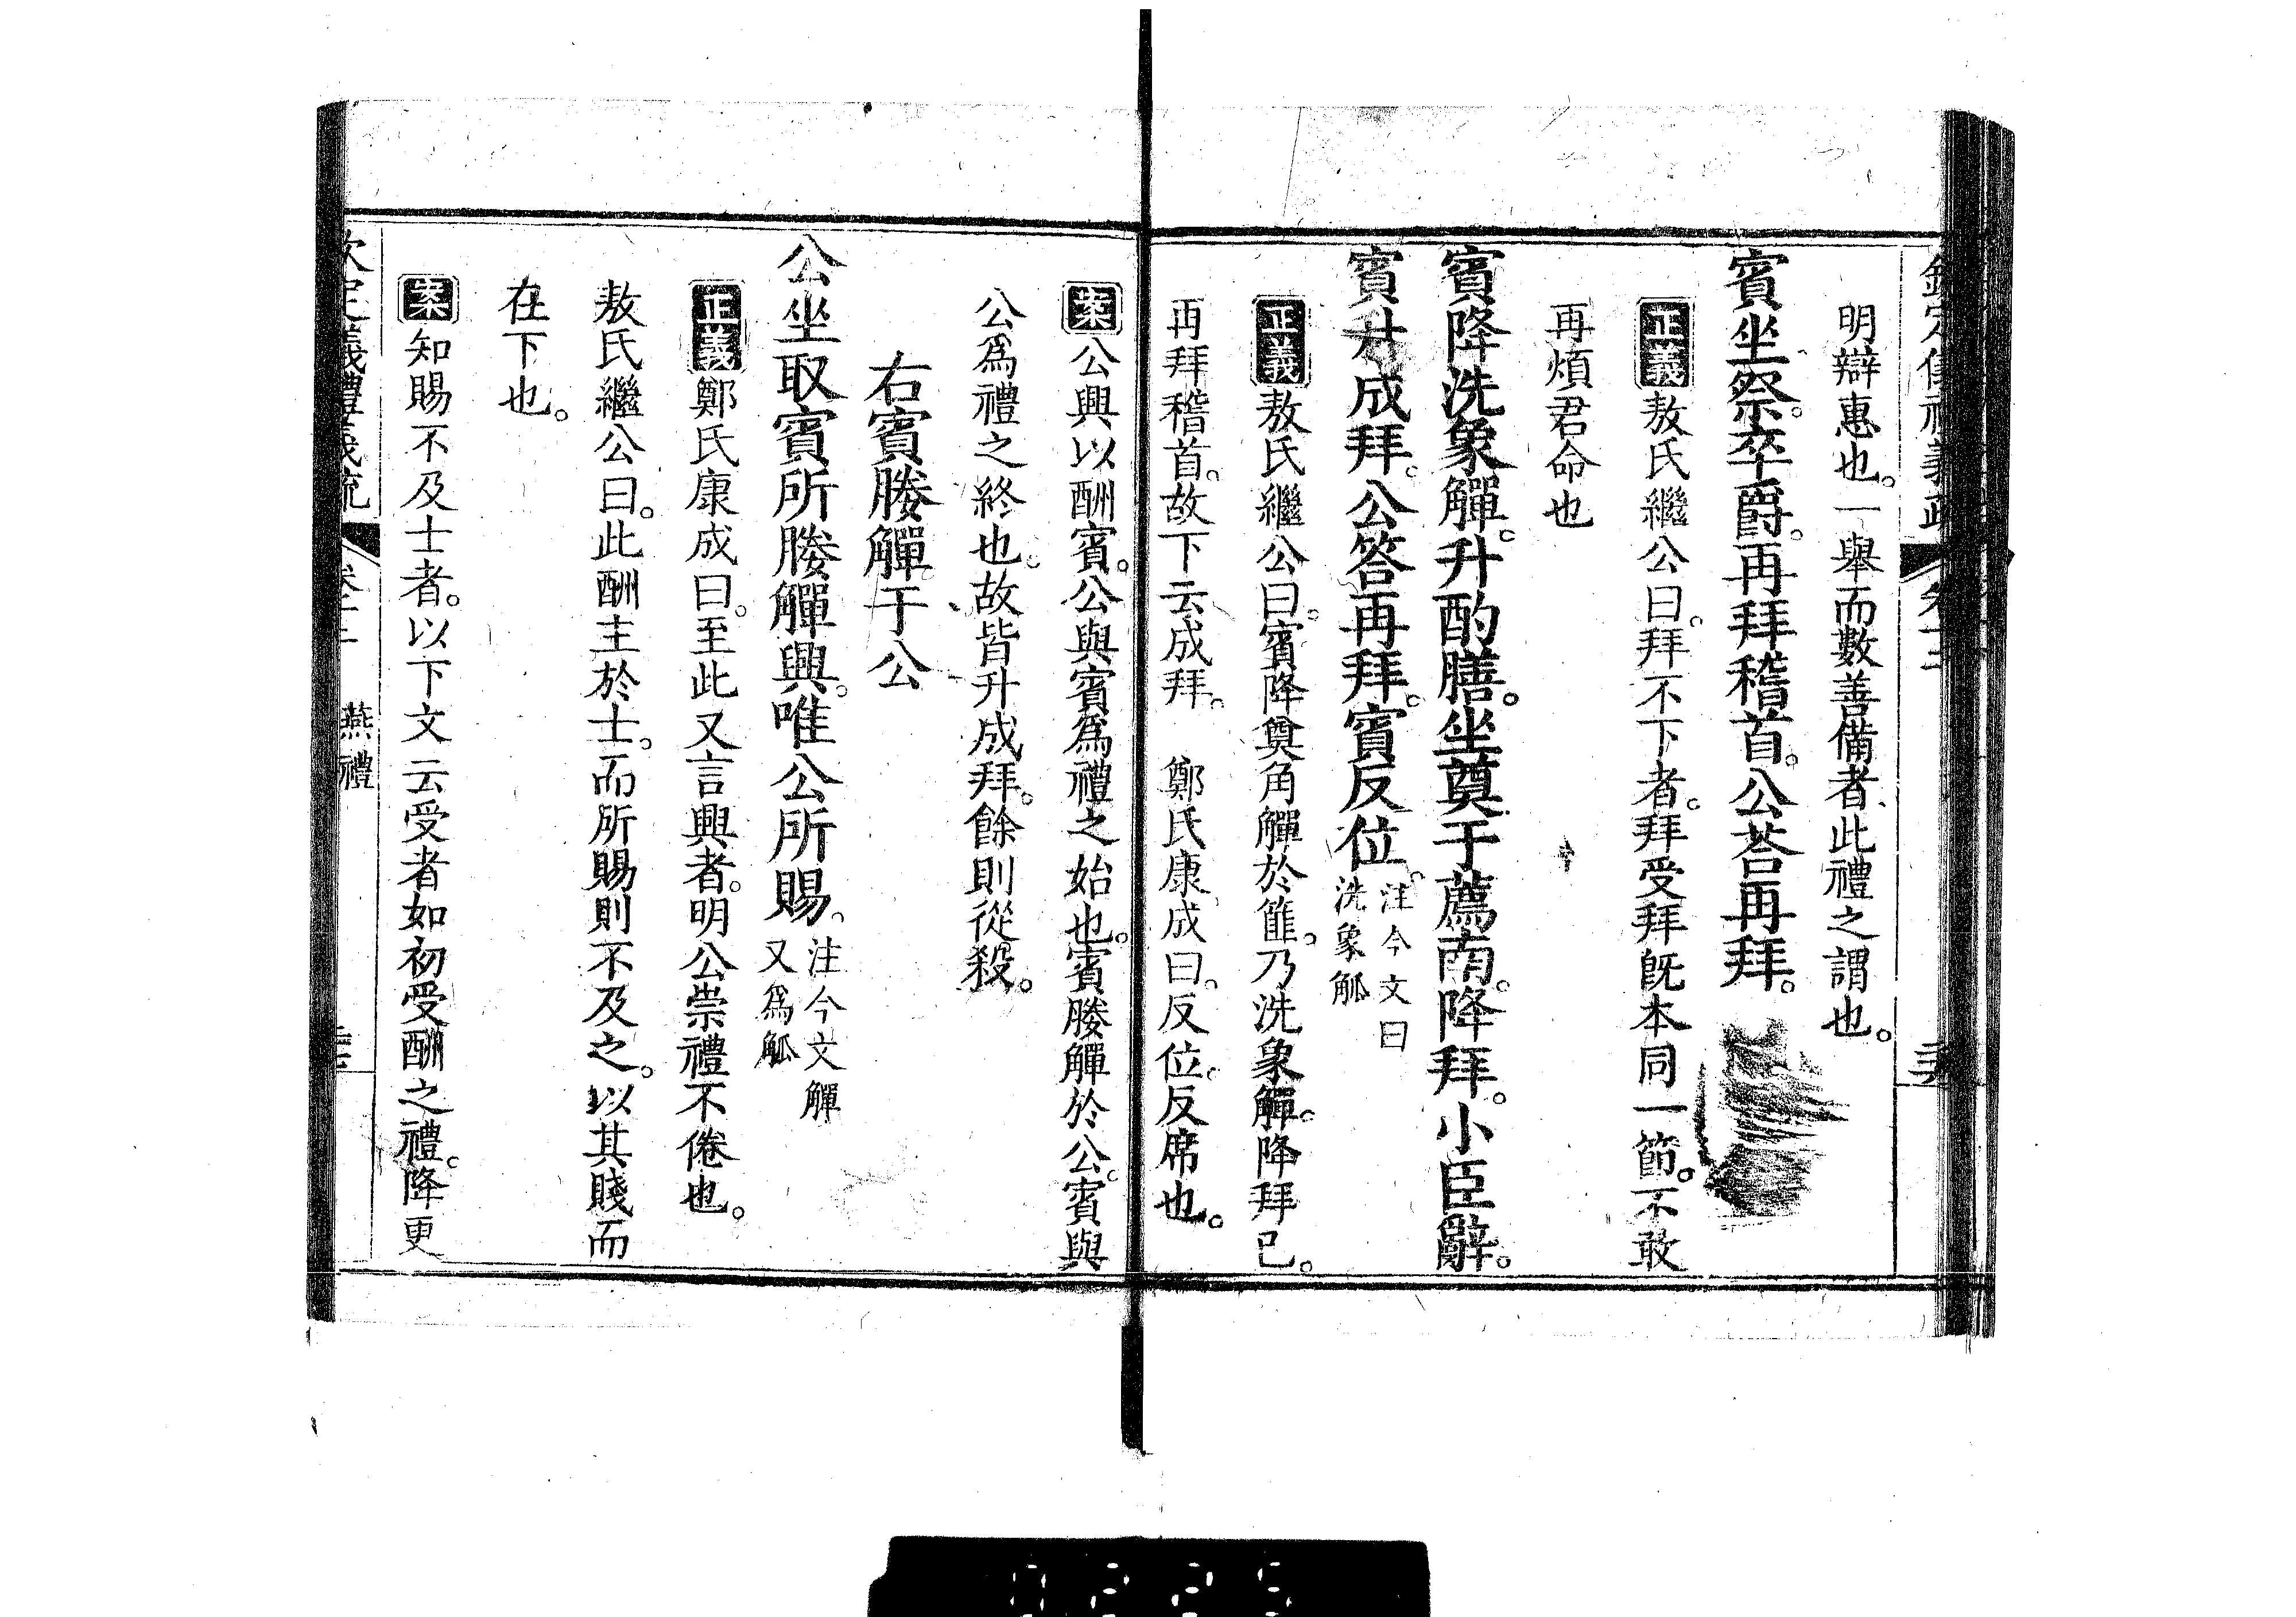 明辯惠也。一舉而數善備者、此禮之謂也。
賓坐祭。卒爵。再拜稽首。公荅再拜。
正義敖氏繼公曰。拜不下者。拜受拜旣本同一節。不敢
再煩君命也
賓降洗象觶。升酌膳。坐奠于薦南。降拜。小臣辭。
賓升成拜。公答再拜。賓反位。注今文曰洗象觚
正義敖氏繼公曰。賓降奠角觶於篚。乃洗象觶。降拜已。
再拜稽首。故下云成拜。 鄭氏康成曰。反位。反席也。
案公興以酬賓。公與賓為禮之始也。賓媵觶於公。賓與
公為禮之終也。故皆升成拜。餘則從殺。
右賓媵觶于公
公坐取賓所媵觶興。唯公所賜。注今文觶又為觚
正義鄭氏康成曰。至此又言興者。明公崇禮不倦也。
敖氏繼公曰。此酬主於士。而所賜則不及之。以其賤而
在下也。
案知賜不及士者。以下文云受者如初受酬之禮。降更
燕禮